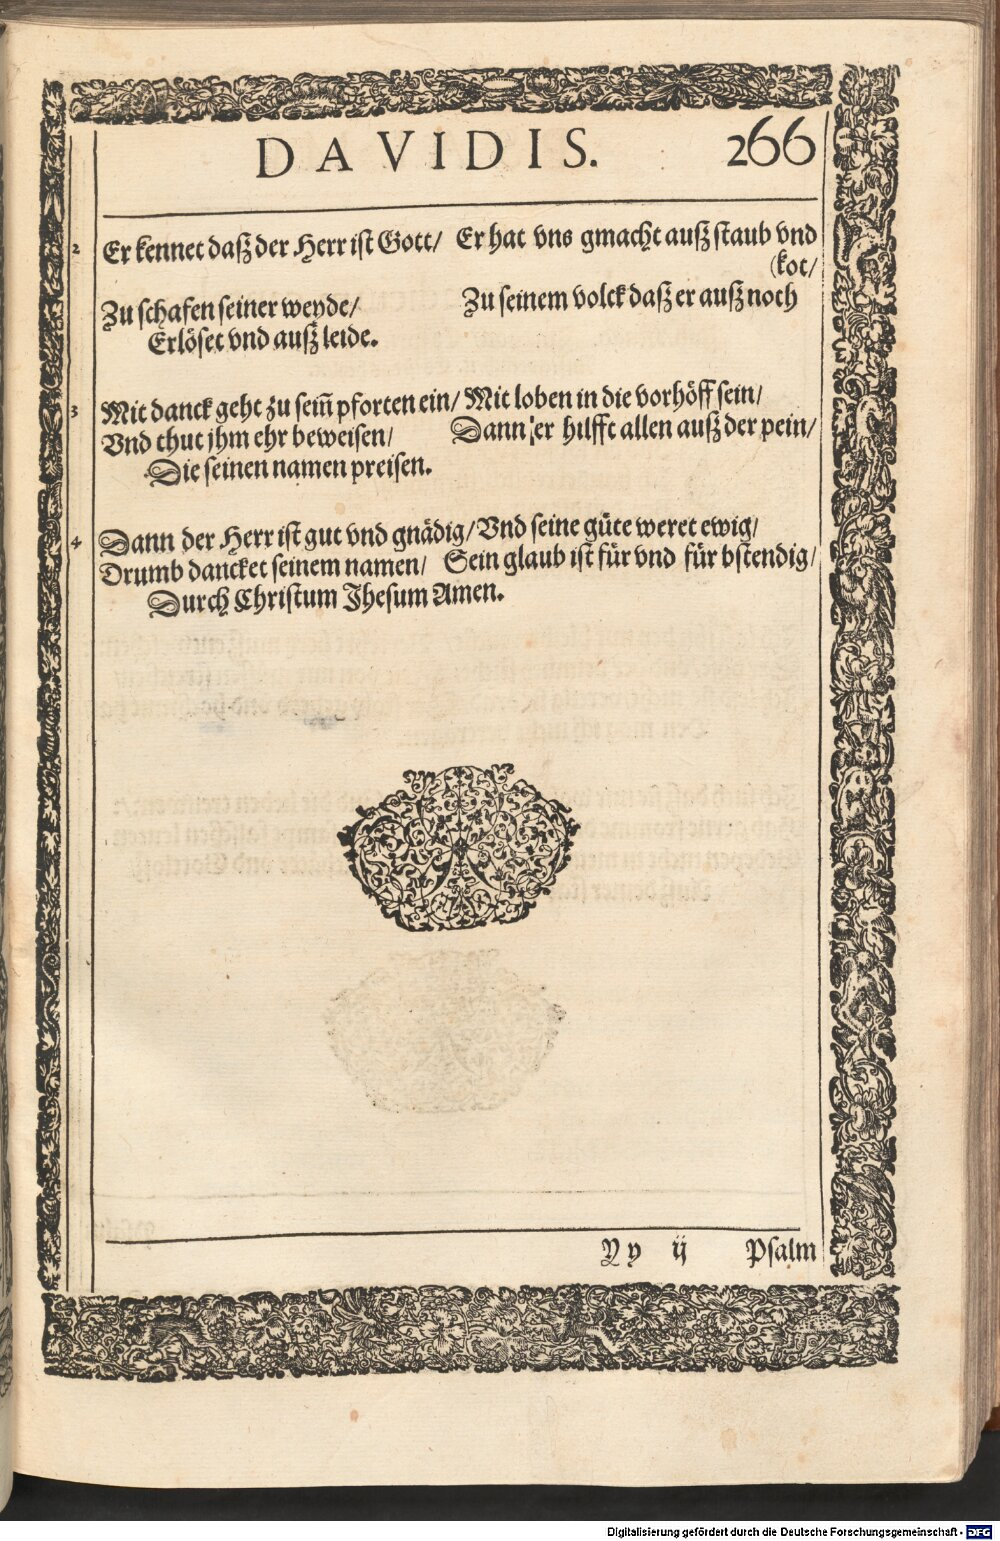 DAVIDIS. 266
2 Er kennet daß der Herr ist Gott/ Er hat vns gmacht auß staub vnd
(kot/
Zu schafen seiner weyde/ Zu seinem volck daß er auß noch
Erlöset vnd auß leide.
3 Mit danck geht zu seim̃ pforten ein/ Mit loben in die vorhöff sein/
Vnd thut jhm ehr beweisen/ Dann er hilfft allen auß der pein/
Die seinen namen preisen.
4 Dann der Herr ist gut vnd gnädig/ Vnd seine güte weret ewig/
Drumb dancket seinem namen/ Sein glaub ist für vnd für bstendig/
Durch Christum Jhesum Amen.
Yy ij Psalm
Digitalisierung gefördert durch die Deutsche Forschungsgemeinschaft - DFG